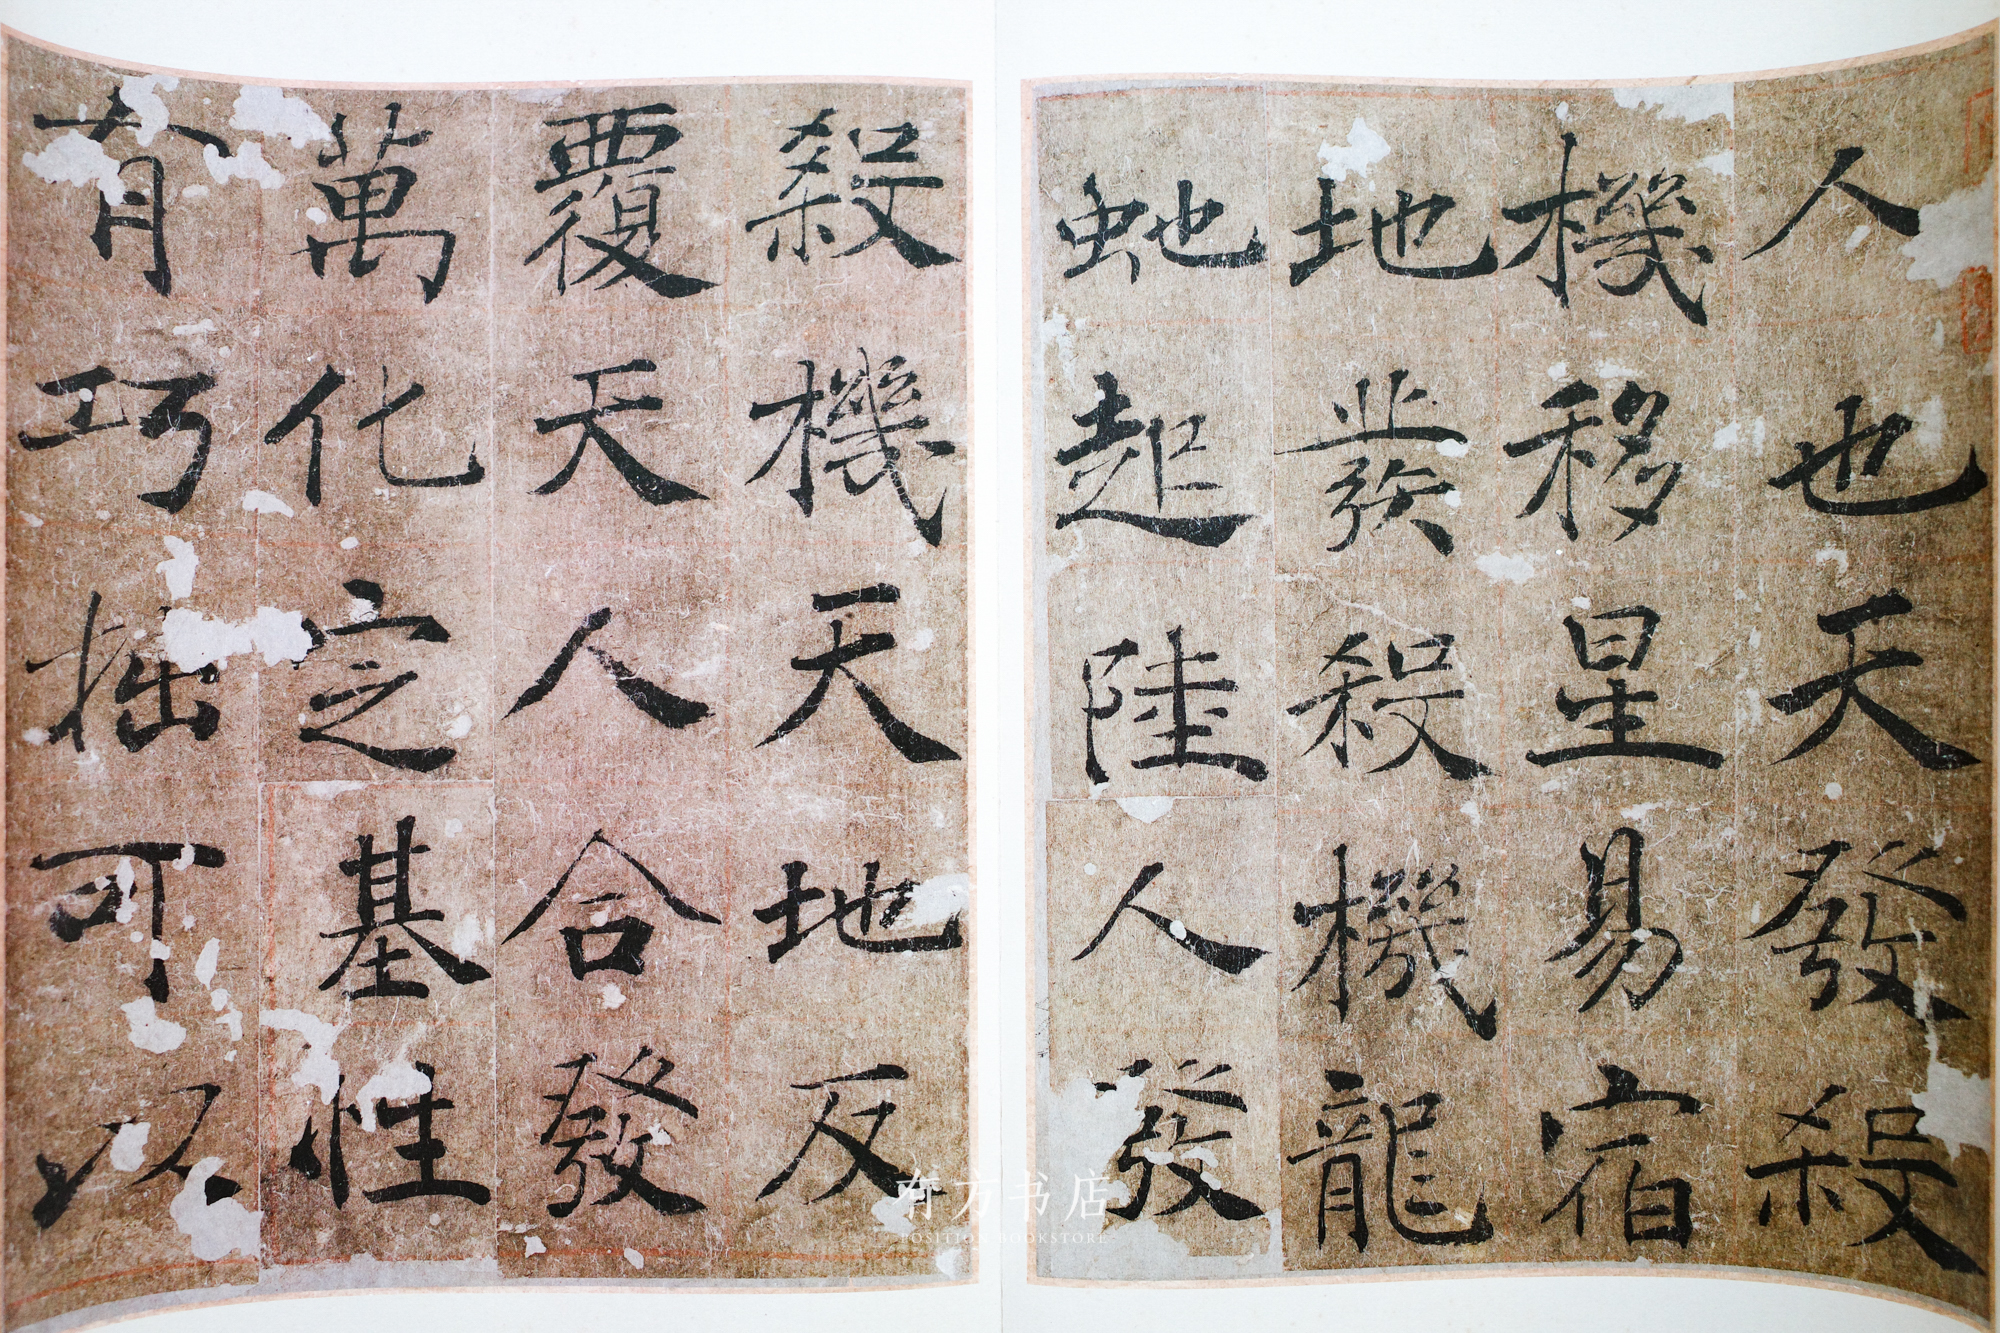 人也天發殺
機移星易宿
地發殺機龍
虵起陸人發
殺機天地反
覆天人合發
萬化之基性
有巧拙可以
有方书店
POSITION BOOKSTORE